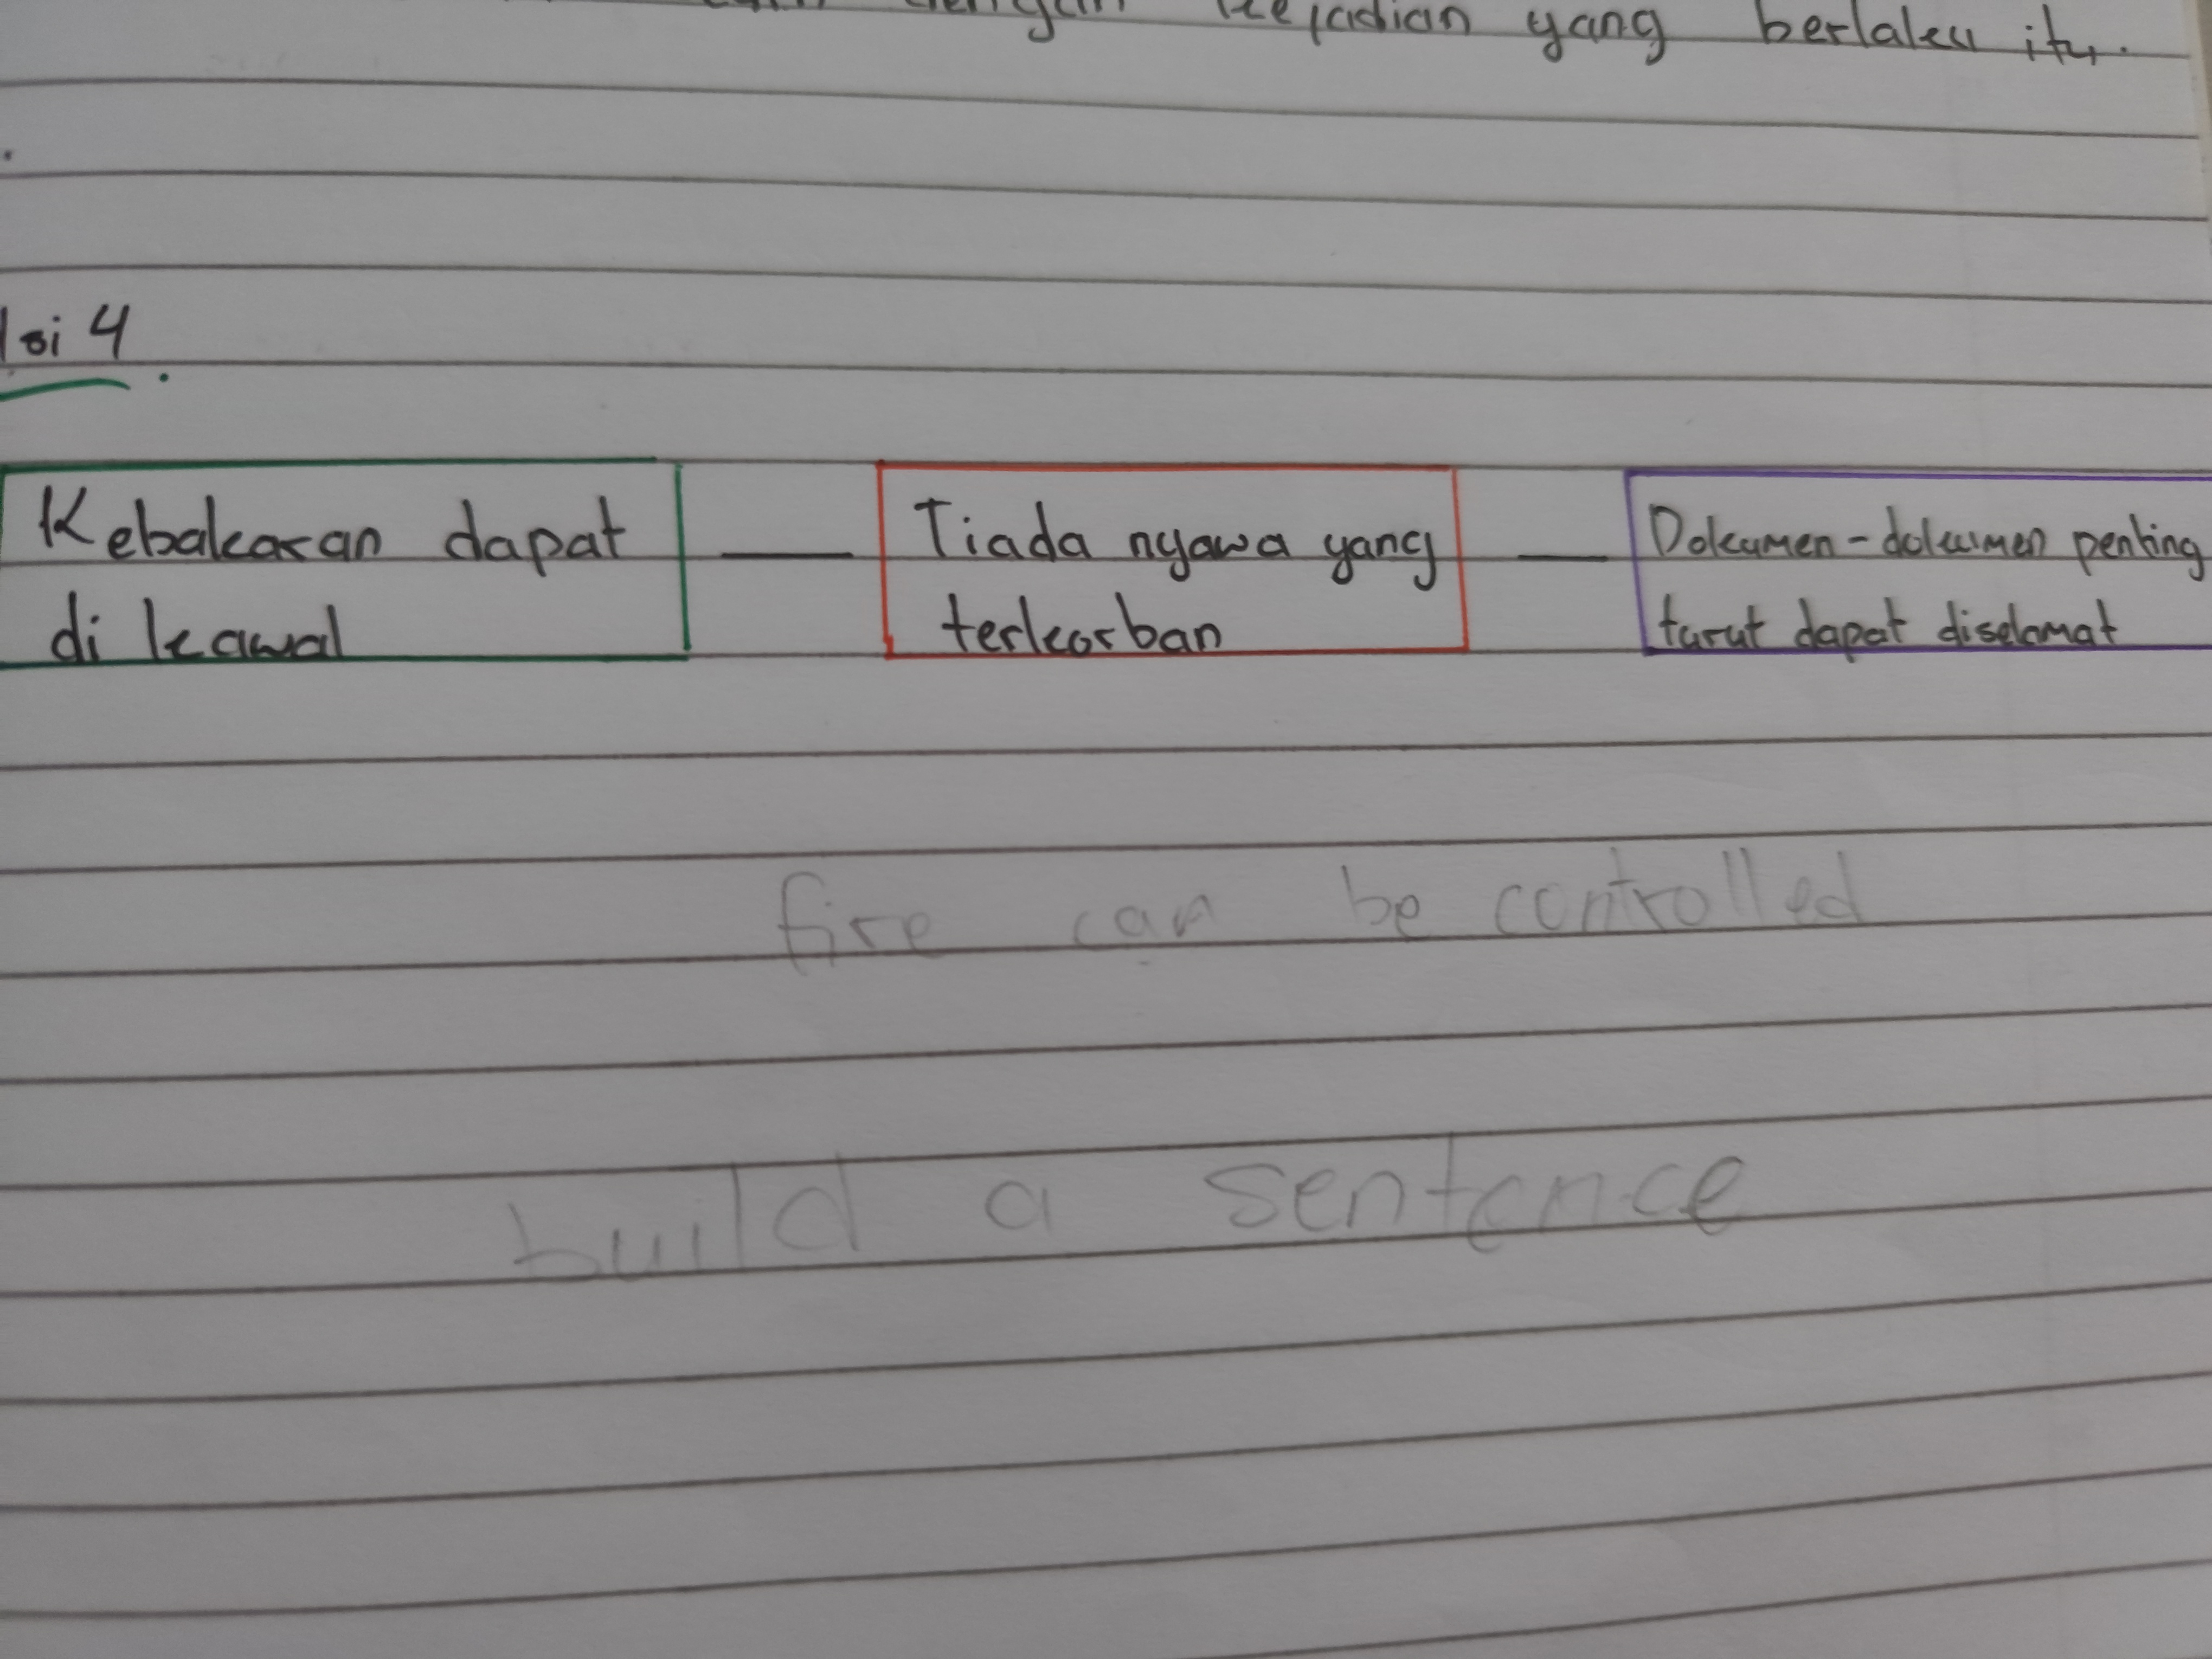 dengan kejadian yang berlaku itu.
Isi 4
Kebakaran dapat
di kawal
Tiada nyawa yang
terkorban
Dokumen-dokumen penting
turut dapat diselamat
fire can be controlled
build a sentence